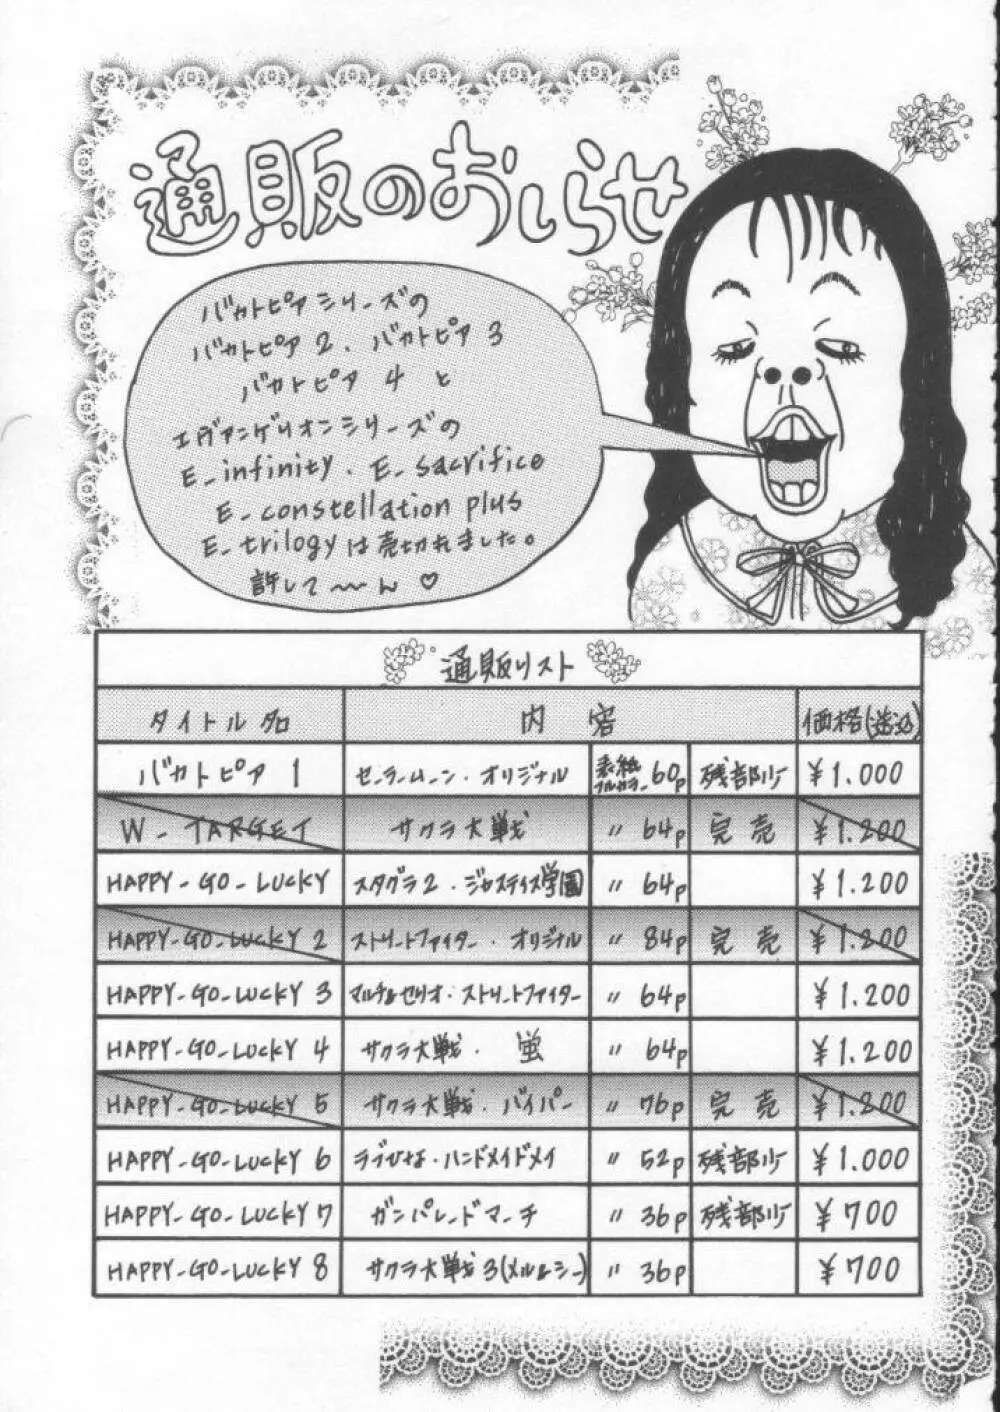 通販のおしらせ
バカトピアシリーズの
バカトピア2、バカトピア3
バカトピア4と
エヴァンゲリオンシリーズの
E_infinity. E_sacrifice
E_constellation plus
E_trilogyは売切れました。
許して〜ん♡
通販リスト
タイトル名 内容 価格(送込)
バカトピア1 セーラームーン・オリジナル 表紙フルカラー60p 残部少 ¥1.000
W_TARGET サクラ大戦 〃 64p 完売 ¥1.200
HAPPY_GO_LUCKY スタグラ2・ジャスティス学園 〃 64p ¥1.200
HAPPY_GO_LUCKY 2 ストリートファイター・オリジナル 〃 84p 完売 ¥1.200
HAPPY_GO_LUCKY 3 マルチ&セリオ・ストリートファイター 〃 64p ¥1.200
HAPPY_GO_LUCKY 4 サクラ大戦・蛍 〃 64p ¥1.200
HAPPY_GO_LUCKY 5 サクラ大戦・バイパー 〃 76p 完売 ¥1.200
HAPPY_GO_LUCKY 6 ラブひな・ハンドメイドメイ 〃 52p 残部少 ¥1.000
HAPPY_GO_LUCKY 7 ガンパレードマーチ 〃 36p 残部少 ¥700
HAPPY_GO_LUCKY 8 サクラ大戦3(メル&シー) 〃 36p ¥700